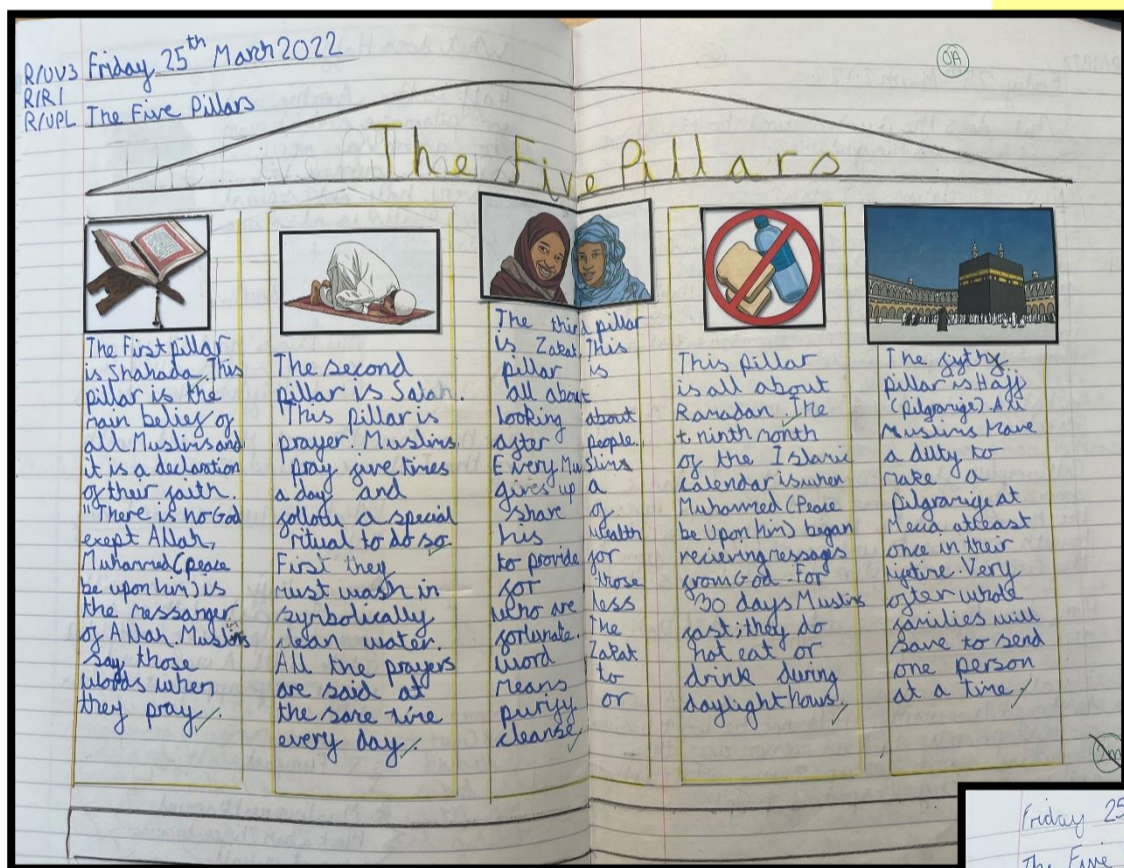 R/UV3 Friday 25th March 2022
R/R1
R/UPL The Five Pillars
OA
The Five Pillars
The First pillar
is Shahada. This
pillar is the
main belief of
all Muslims and
it is a declaration
of their faith.
"There is no God
exept Allah,
Muhammed (peace
be upon him) is
the messanger
of Allah. Muslims
say those
words when
they pray.
The second
pillar is Salah.
This pillar is
prayer. Muslims
pray five times
a day and
follow a special
ritual to do so.
First they
must wash in
symbolically
clean water.
All the prayers
are said at
the same time
every day.
The third pillar
is Zakat. This
pillar is
all about
looking about
after people.
Every Muslims
gives up a
share of
his wealth
to provide for
for those
who are less
fortunate. The
word Zakat
means to
purify or
cleanse
This pillar
is all about
Ramadan. The
t ninth month
of the Islamic
calendar is when
Muhammed (Peace
be Upon him) began
recieving messages
from God. For
30 days Muslims
fast; they do
not eat or
drink during
daylight hours.
The fifth
pillar is Hajj
(pilgramige). All
Muslims have
a duty to
make a
pilgramige at
Mecca atleast
once in their
lifetime. Very
often whole
families will
save to send
one person
at a time.
Friday 25
The Five